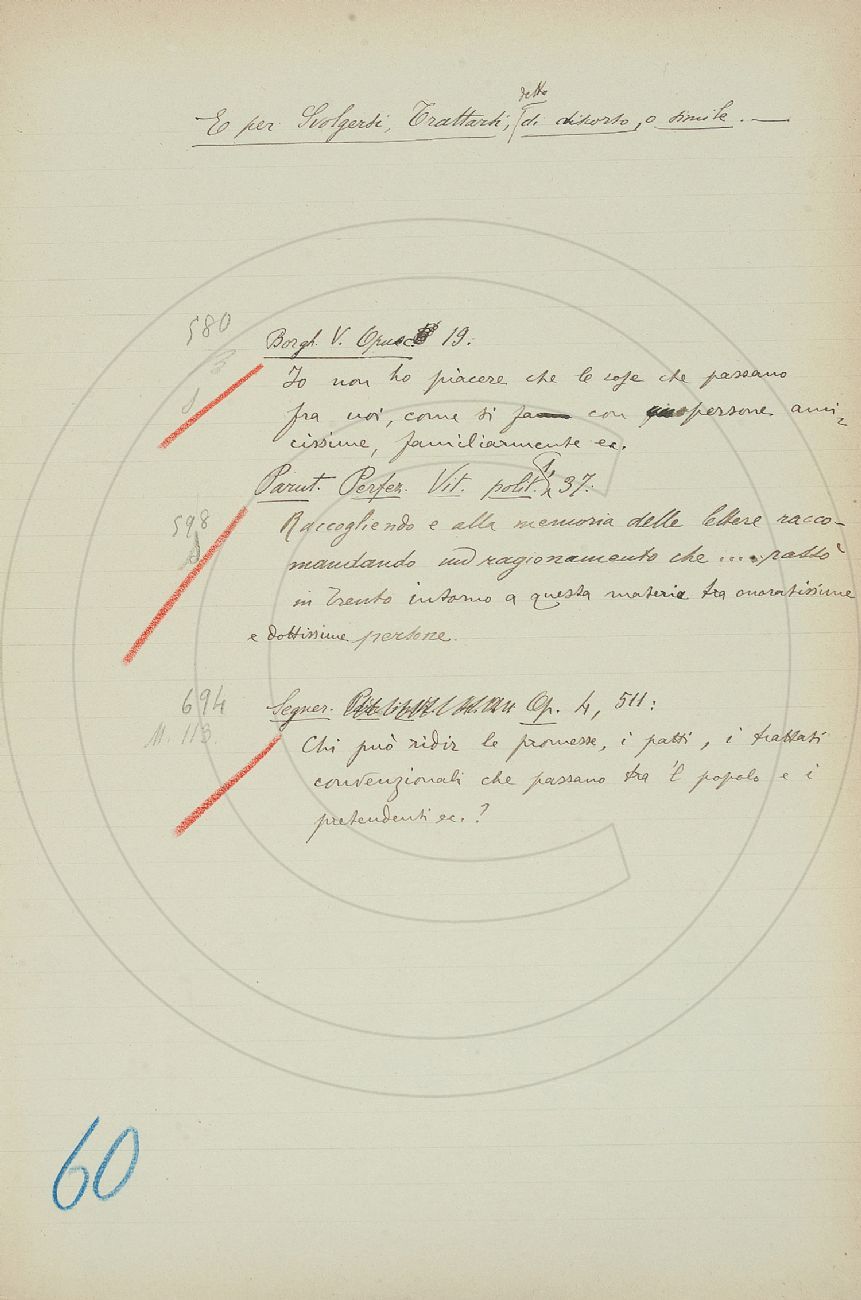 E per Svolgersi, Trattarsi, detto di discorso, o simile. —
580
Borgh. V. Opusc. 19:
Io non ho piacere che le cose che passano
fra noi, come si fa con persone ami-
cissime, familiarmente ec.
Parut. Perfez. Vit. polit. 37:
598
Raccogliendo e alla memoria delle lettere racco-
mandando un ragionamento che .... passò
in Trento intorno a questa materia tra onoratissime
e dottissime persone.
694
Segner. Op. 4, 511:
M. 113.
Chi può ridir le promesse, i patti, i trattati
convenzionali che passano tra 'l popolo e i
pretendenti ec.?
60